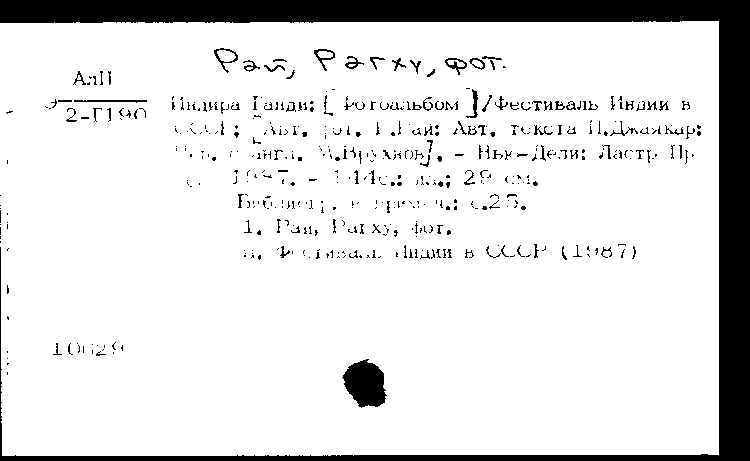 Рай, Рагху, фот.
АлП
2-Г190
Индира Ганди: [Фотоальбом]/Фестиваль Индии в
СССР; [Авт. фот. Р.Рай: Авт. текста П.Джаякар:
Пер. с англ. М.Врухнов]. - Нью-Дели: Ластр Пр
1987. - 144с.: ил.; 29 см.
Библиогр. в примеч.: с.25.
1. Рай, Рагху, фот.
п. Фестиваль Индии в СССР (1987)
10629